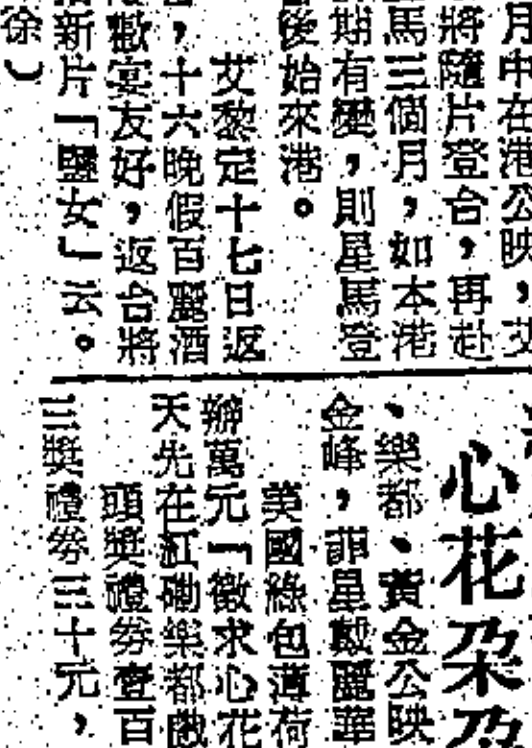 月中在港公映,艾
將隨片登台,再赴
馬三個月,如本港
期有變,則星馬登
後始來港。
艾黎定十七日返
,十六晚假百麗酒
歡宴友好,返台將
新片「鹽女」云。
徐)
心花朶朶
、樂都、黃金公映
金峰,菲星戴麗華
美國綠包薄荷
辦萬元「徵求心花
天先在紅磡樂都戲
頭獎禮券壹百
三獎禮券三十元,